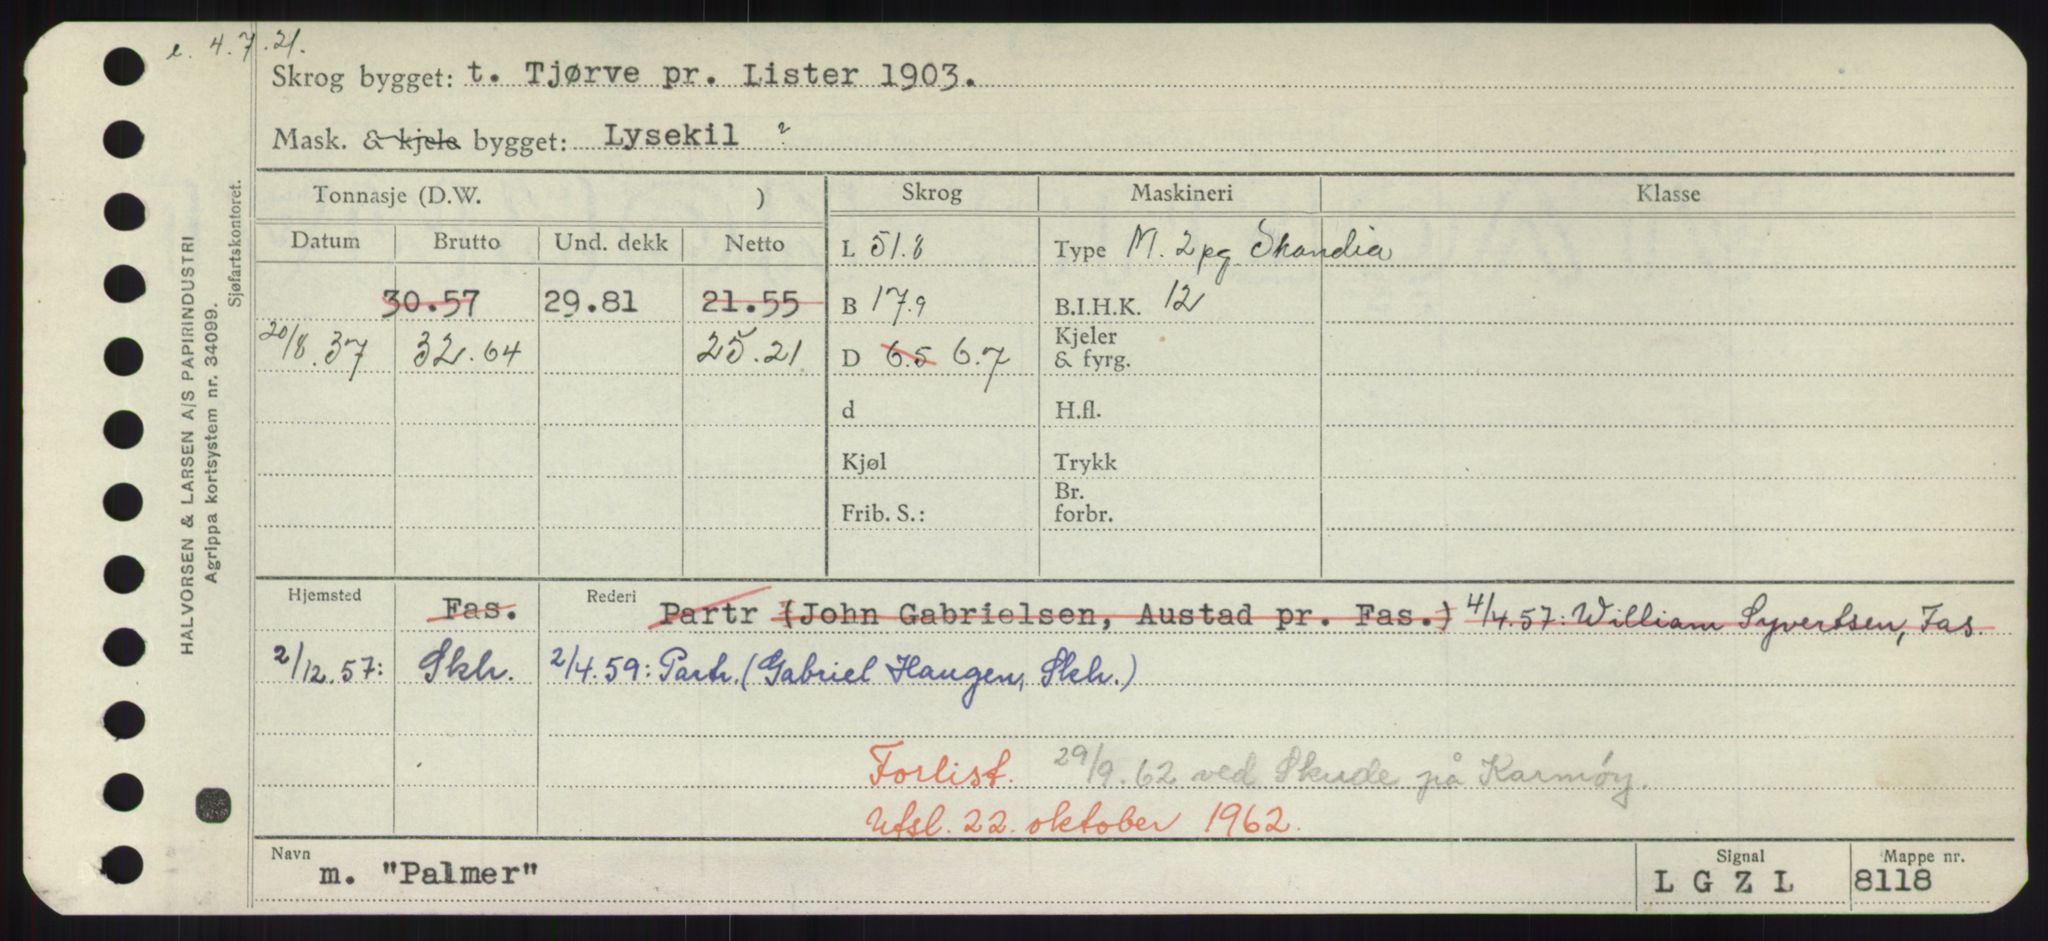 e. 4.7.21.
Skrog bygget: t. Tjørve pr. Lister 1903.
Mask. & kjele bygget: Lysekil ?
Tonnasje (D.W. ) Skrog Maskineri Klasse
Datum Brutto Und. dekk Netto L 51.8 Type M. 2 pg Skandia
30.57 29.81 21.55 B 17.9 B.I.H.K. 12
20/8.37 32.64 25.21 D 6.5 6.7 Kjeler & fyrg.
d H.fl.
Kjøl Trykk
Frib. S.: Br. forbr.
Hjemsted Fas. Rederi Partr (John Gabrielsen, Austad pr. Fas.) 4/4.57: William Syvertsen, Fas.
2/12.57: Skh. 2/4.59: Partr. (Gabriel Haugen, Skh.)
Forlist. 29/9.62 ved Skude på Karmøy.
Utsl. 22. oktober 1962.
Navn m. "Palmer" Signal L G Z L Mappe nr. 8118
HALVORSEN & LARSEN A/S PAPIRINDUSTRI
Agrippa kortsystem nr. 34099.
Sjøfartskontoret.